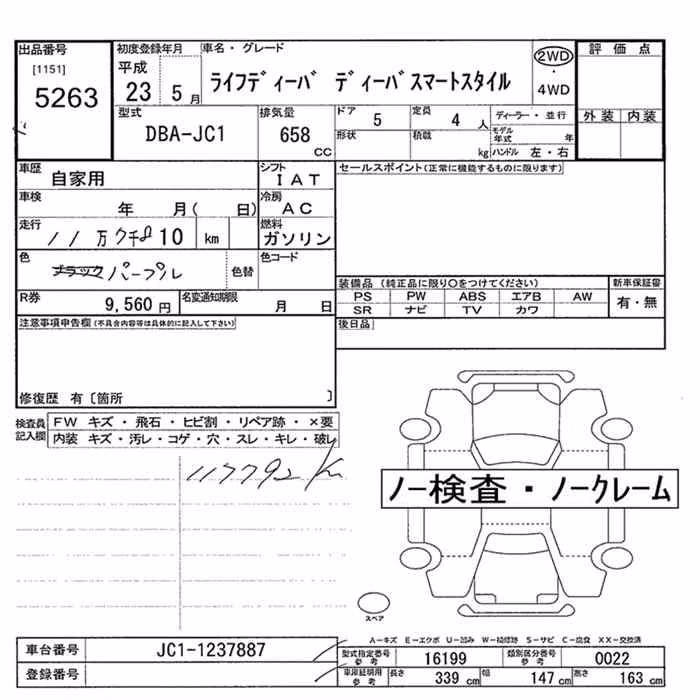 出品番号
[1151]
5263
初度登録年月
平成
23 5 月
車名・グレード
ライフディーバ ディーバスマートスタイル
2WD
・
4WD
評価点
外装 内装
型式
DBA-JC1
排気量
658
CC
ドア
5
定員
4 人
ディーラー・並行
形状
積載
kg
モデル年式
年
ハンドル 左・右
車歴
自家用
シフト
IAT
セールスポイント(正常に機能するものに限ります)
車検
年 月( 日)
冷房
AC
走行
11 万 7千8 10 km
燃料
ガソリン
色
ブラック パープル
色替
色コード
装備品 (純正品に限り〇をつけてください)
新車保証書
PS PW ABS エアB AW
SR ナビ TV カワ
有・無
R券
9,560 円
名変通知期限
月 日
後日品
注意事項申告欄(不具合内容等は具体的に記入して下さい)
修復歴 有〔箇所 〕
検査員
記入欄
FW キズ・飛石・ヒビ割・リペア跡・×要
内装 キズ・汚レ・コゲ・穴・スレ・キレ・破レ
117792 Km
ノー検査・ノークレーム
スペア
A-キズ E-エクボ U-凹み W-補修跡 S-サビ C-腐食 XX-交換済
車台番号
JC1-1237887
型式指定番号
参考
16199
類別区分番号
参考
0022
登録番号
車庫証明用
参考
長さ
339 cm
幅
147 cm
高さ
163 cm